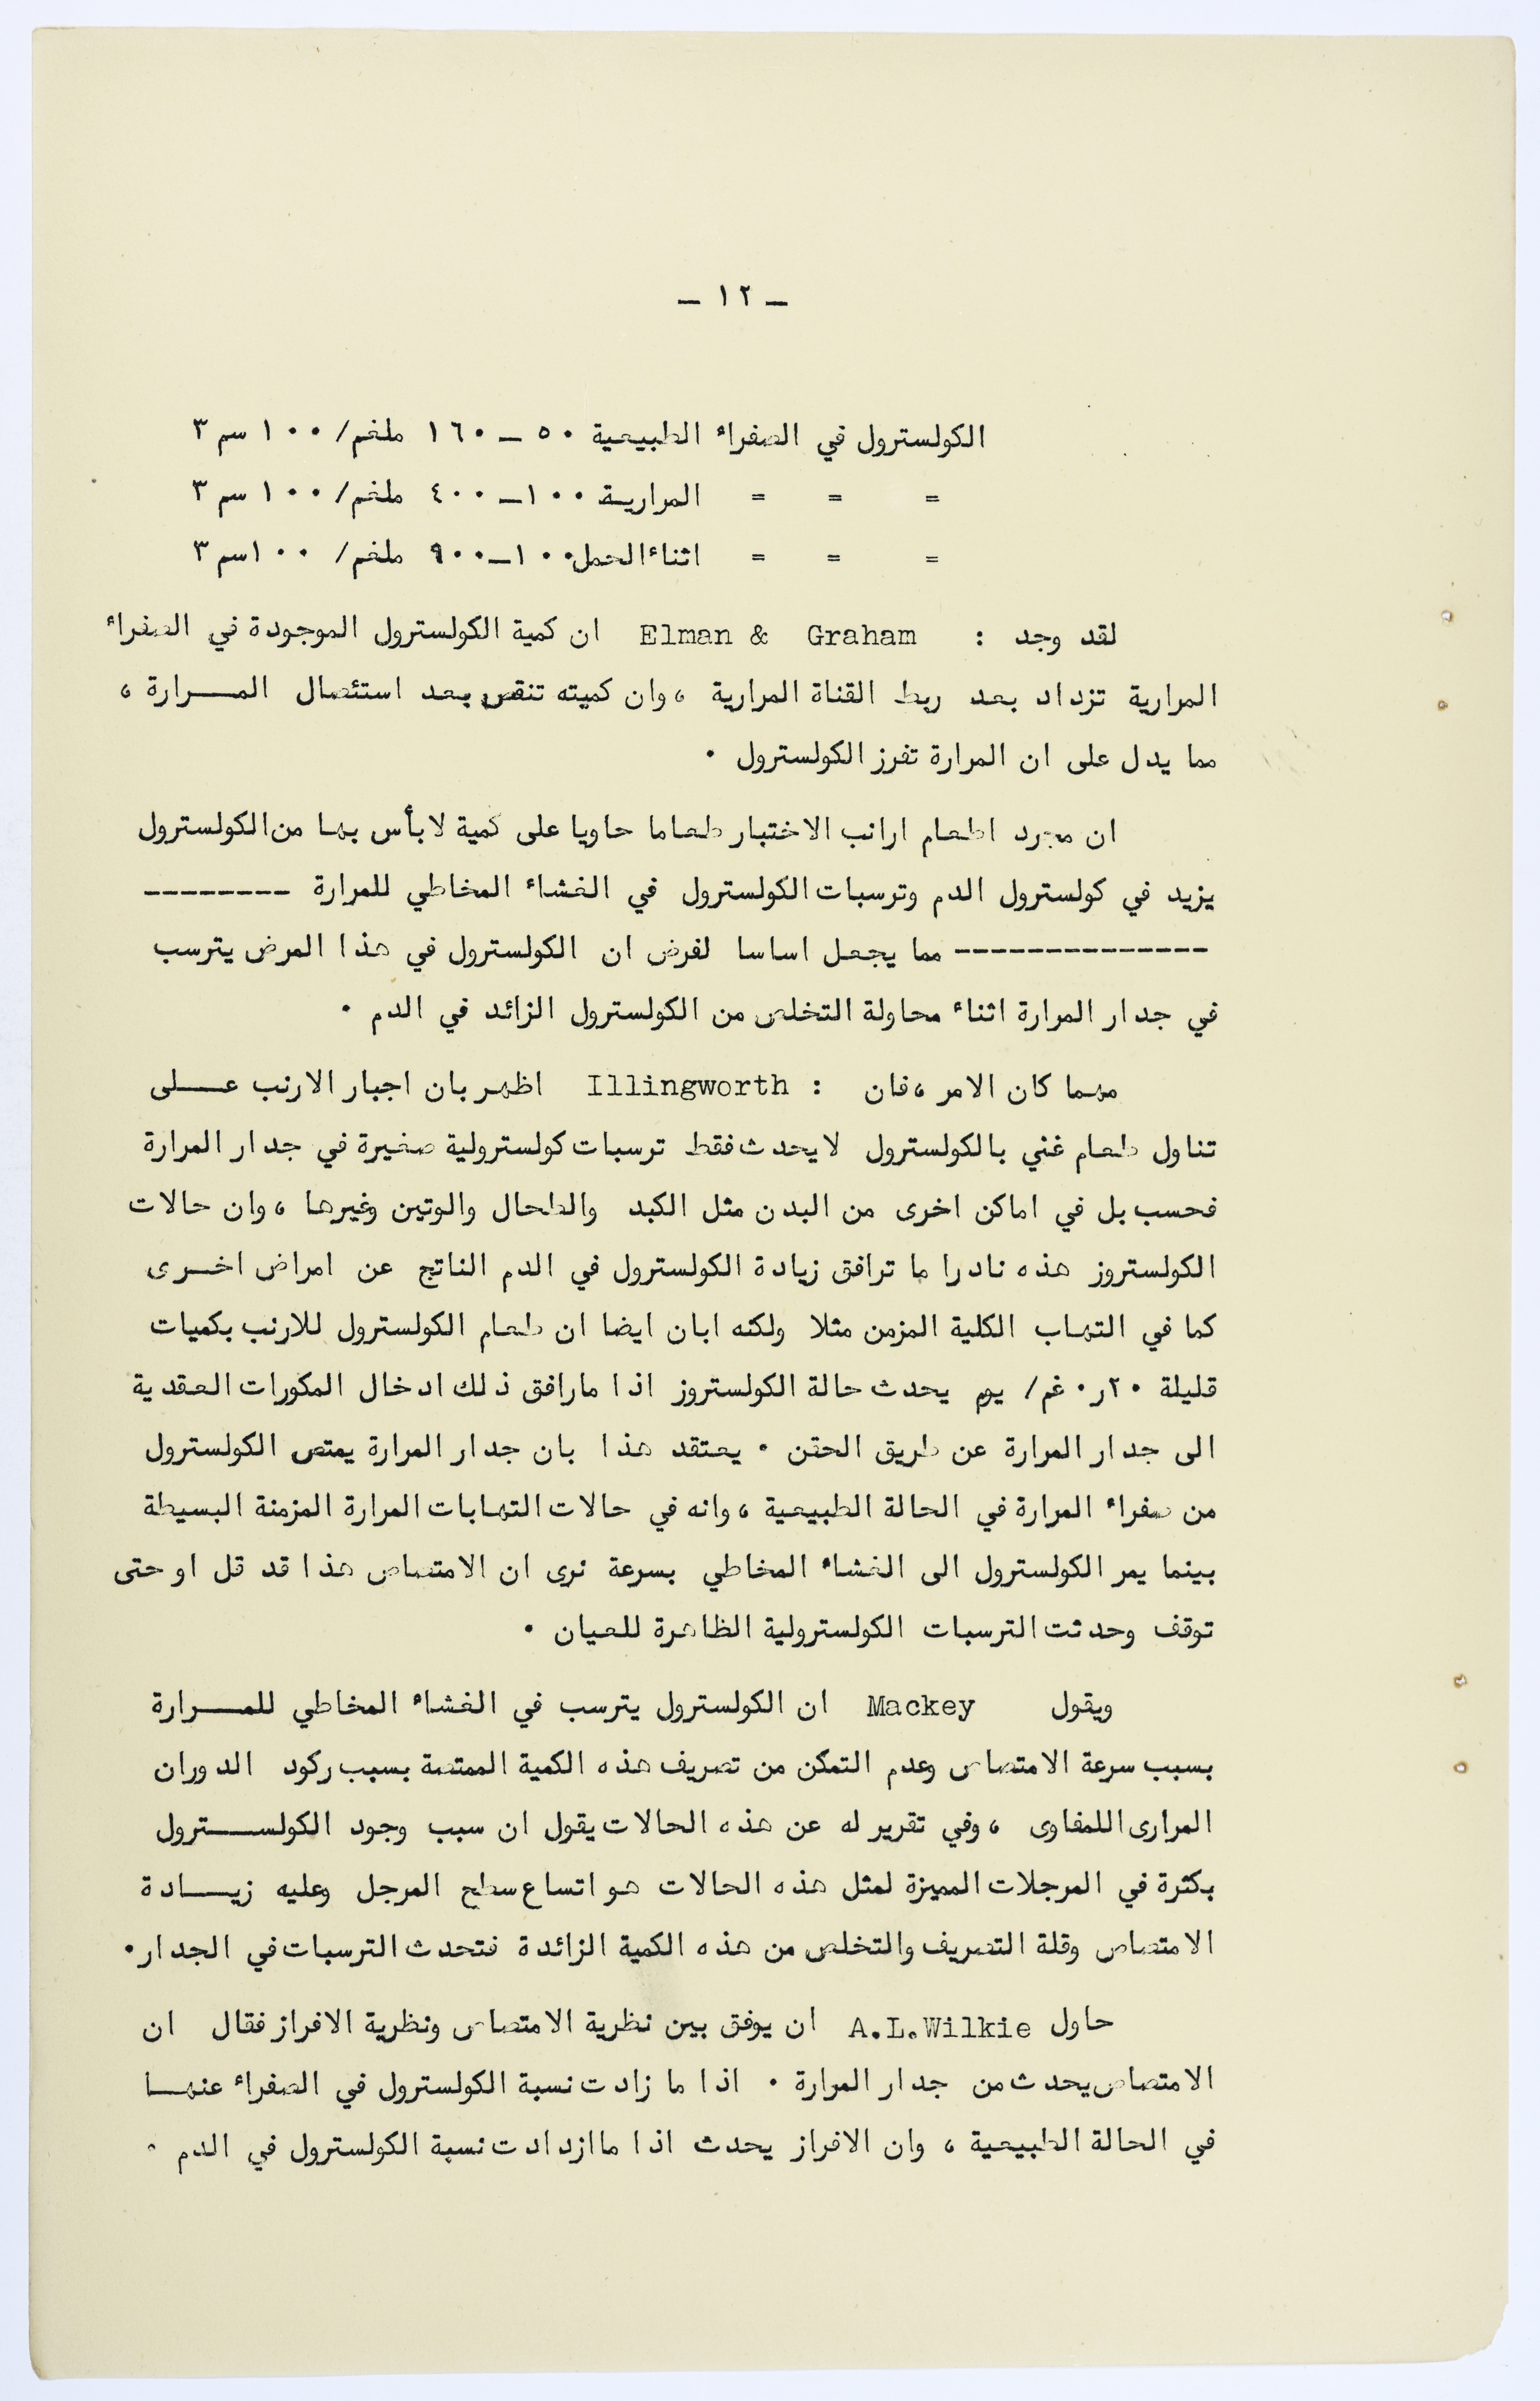 ـ ١٢ ـ
الكولسترول في الصفراء الطبيعية ٥٠ ـ ١٦٠ ملغم/ ١٠٠ سم ٣
= = = المرارية ١٠٠ـ ٤٠٠ ملغم/ ١٠٠ سم ٣
= = = اثناء الحمل ١٠٠ـ ٩٠٠ ملغم/ ١٠٠سم ٣
لقد وجد : Elman & Graham ان كمية الكولسترول الموجودة في الصفراء
المرارية تزداد بعد ربط القناة المرارية ، وان كميته تنقص بعد استئصال المـــرارة ،
مما يدل على ان المرارة تفرز الكولسترول .
ان مجرد اطعام ارانب الاختبار طعاما حاويا على كمية لا بأس بها من الكولسترول
يزيد في كولسترول الدم وترسبات الكولسترول في الغشاء المخاطي للمرارة --------
-------------- مما يجعل اساسا لفرض ان الكولسترول في هذا المرض يترسب
في جدار المرارة اثناء محاولة التخلص من الكولسترول الزائد في الدم .
مهما كان الامر ، فان : Illingworth اظهر بان اجبار الارنب عـــلى
تناول طعام غني بالكولسترول لا يحدث فقط ترسبات كولسترولية صغيرة في جدار المرارة
فحسب بل في اماكن اخرى من البدن مثل الكبد والطحال والوتين وغيرها ، وان حالات
الكولستروز هذه نادرا ما ترافق زيادة الكولسترول في الدم الناتج عن امراض اخــرى
كما في التهاب الكلية المزمن مثلا ولكنه ابان ايضا ان طعام الكولسترول للارنب بكميات
قليلة ٢٠ر٠ غم/ يوم يحدث حالة الكولستروز اذا مارافق ذلك ادخال المكورات العقدية
الى جدار المرارة عن طريق الحقن . يعتقد هذا بان جدار المرارة يمتص الكولسترول
من صفراء المرارة في الحالة الطبيعية ، وانه في حالات التهابات المرارة المزمنة البسيطة
بينما يمر الكولسترول الى الغشاء المخاطي بسرعة نرى ان الامتصاص هذا قد قل او حتى
توقف وحدثت الترسبات الكولسترولية الظاهرة للعيان .
ويقول Mackey ان الكولسترول يترسب في الغشاء المخاطي للمـــرارة
بسبب سرعة الامتصاص وعدم التمكن من تصريف هذه الكمية الممتصة بسبب ركود الدوران
المرارى اللمفاوى ، وفي تقرير له عن هذه الحالات يقول ان سبب وجود الكولســـترول
بكثرة في المرجلات المميزة لمثل هذه الحالات هو اتساع سطح المرجل وعليه زيـــادة
الامتصاص وقلة التصريف والتخلص من هذه الكمية الزائدة فتحدث الترسبات في الجدار.
حاول A.L.Wilkie ان يوفق بين نظرية الامتصاص ونظرية الافراز فقال ان
الامتصاص يحدث من جدار المرارة . اذا ما زادت نسبة الكولسترول في الصفراء عنهـــا
في الحالة الطبيعية ، وان الافراز يحدث اذا ما ازدادت نسبة الكولسترول في الدم .